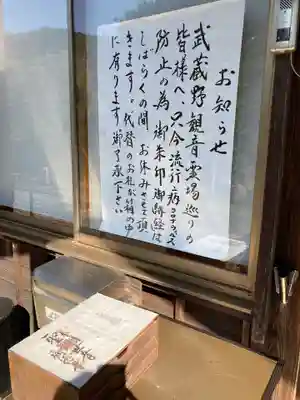 お知らせ
武蔵野観音霊場巡りの
皆様へ、只今流行病コロナウイルス
防止の為御朱印御納経は
しばらくの間お休みさせて頂
きます。代替のお札が箱の中
に有ります御了承下さい